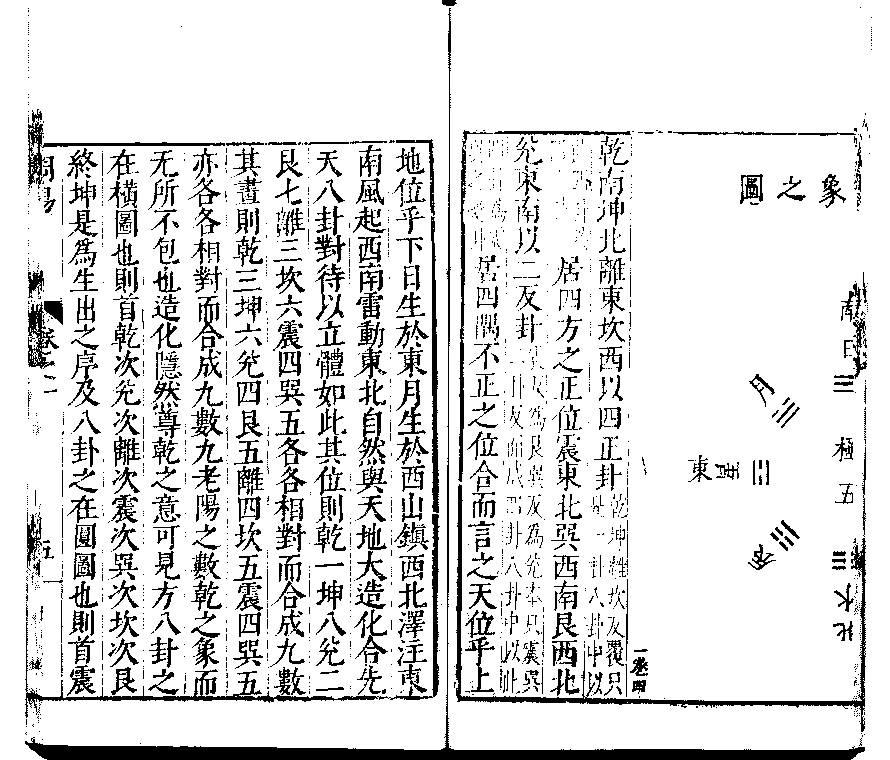 象之圖
南
日
極
五
水
北
月
星
東
乾南坤北離東坎西以四正卦乾坤離坎反覆只是一卦八卦中以
居四方之正位震東北巽西南艮西北
兌東南以二反卦震反為艮巽反為兌本只震巽二卦反而成四卦八卦中以此
居四隅不正之位合而言之天位乎上
地位乎下日生於東月生於西山鎮西北澤注東
南風起西南雷動東北自然與天地大造化合先
天八卦對待以立體如此其位則乾一坤八兌二
艮七離三坎六震四巽五各各相對而合成九數
其畫則乾三坤六兌四艮五離四坎五震四巽五
亦各各相對而合成九數九老陽之數乾之象而
无所不包也造化隱然尊乾之意可見方八卦之
在橫圖也則首乾次兌次離次震次巽次坎次艮
終坤是為生出之序及八卦之在圓圖也則首震
周易
五
一卷四